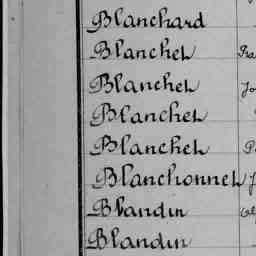 Blanchard
Blanchet
Blanchet
Blanchet
Blanchet
Blanchonnet
Blandin
Blandin